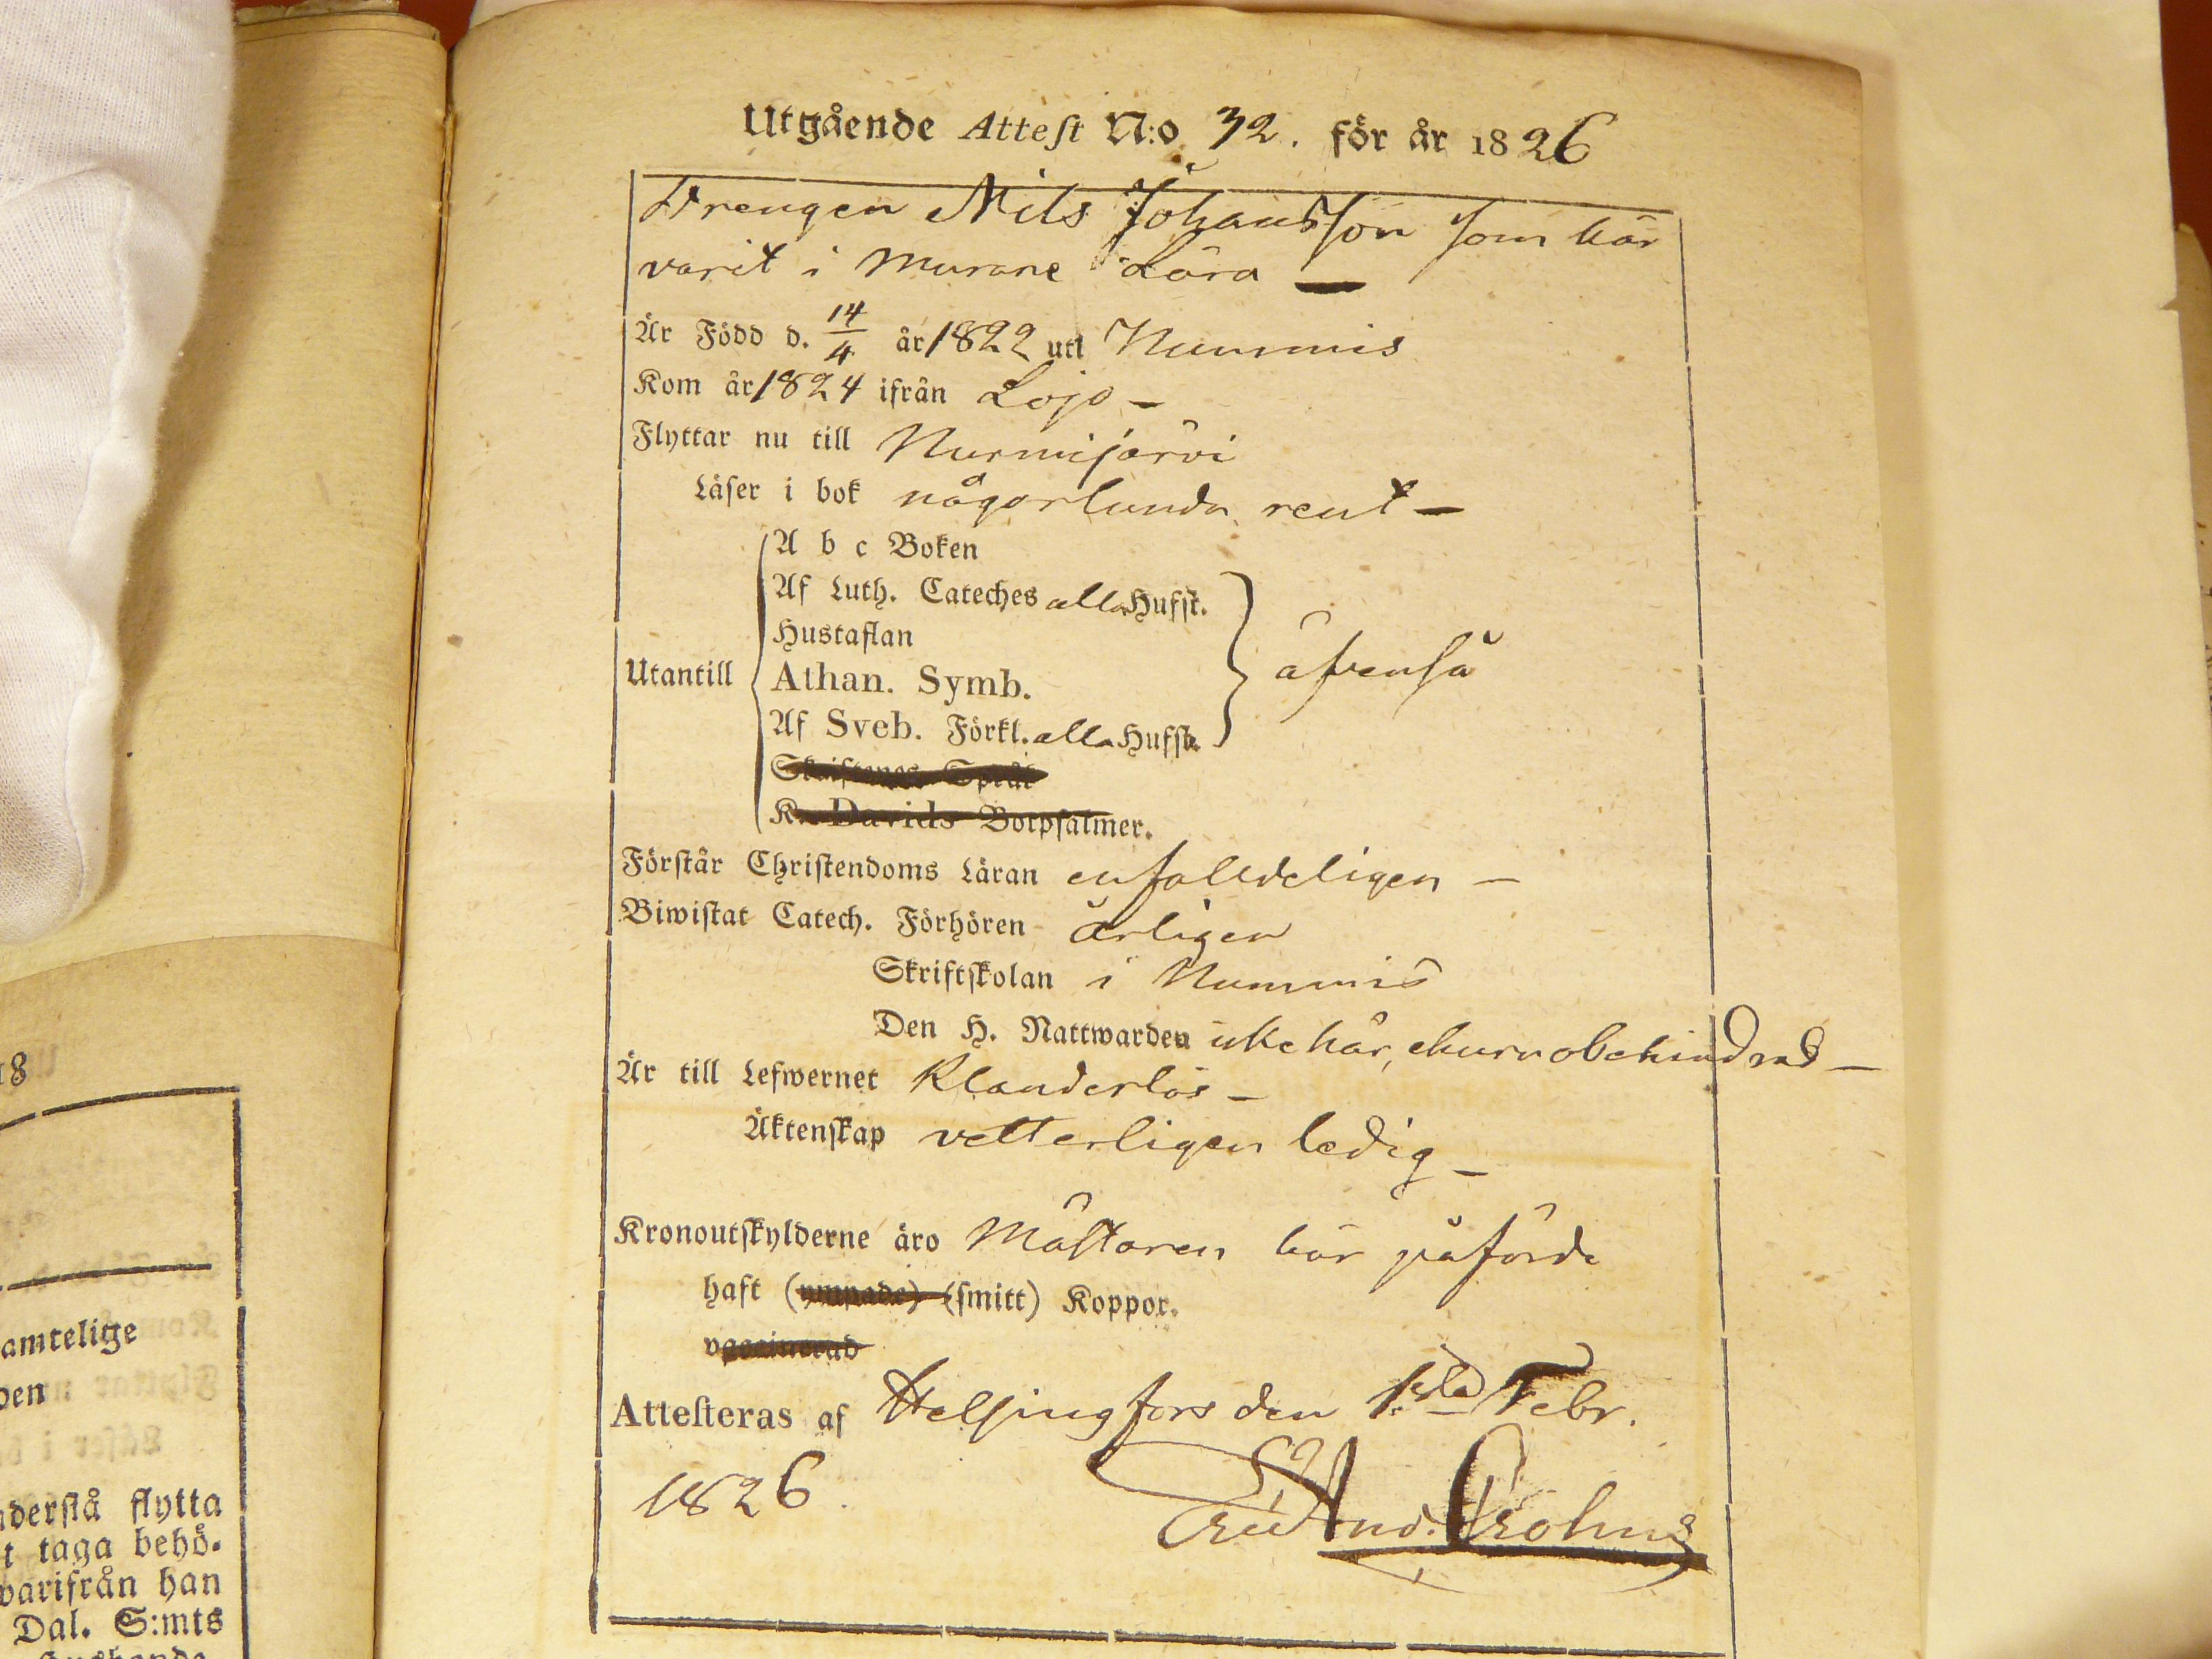 Utgående Attest N:o 32. för år 1826
Drengen Nils Johansson som här
varit i Murare Lära —
Är Född d. 14/4 år 1822 uti Nummis
Kom år 1824 ifrån Lojo —
Flyttar nu till Nurmijärvi
Läser i bok någorlunda rent —
A b c Boken
Af Luth. Cateches alla Hufst.
Hustaflan
Utantill Athan. Symb. äfvenså
Af Sveb. Förkl. alla Hufst.
Skriftenes Språk
K. Davids Botpsalmer.
Förstår Christendoms Läran enfalldeligen —
Biwistat Catech. Förhören årligen
Skriftskolan i Nummis
Den H. Nattwarden icke här, ehuru obehindrad —
Är till Lefwernet Klanderlös —
Äktenskap vetterligen ledig —
Kronoutskylderne äro Mästaren här påförde
haft (ympade) (smitt) Koppor.
vaccinerad
Attesteras af Helsingfors den 1sta Febr.
1826.
And. Crohns
18
amtelige
den
nderstå flytta
t taga behö-
varifrån han
Dal. S:mts